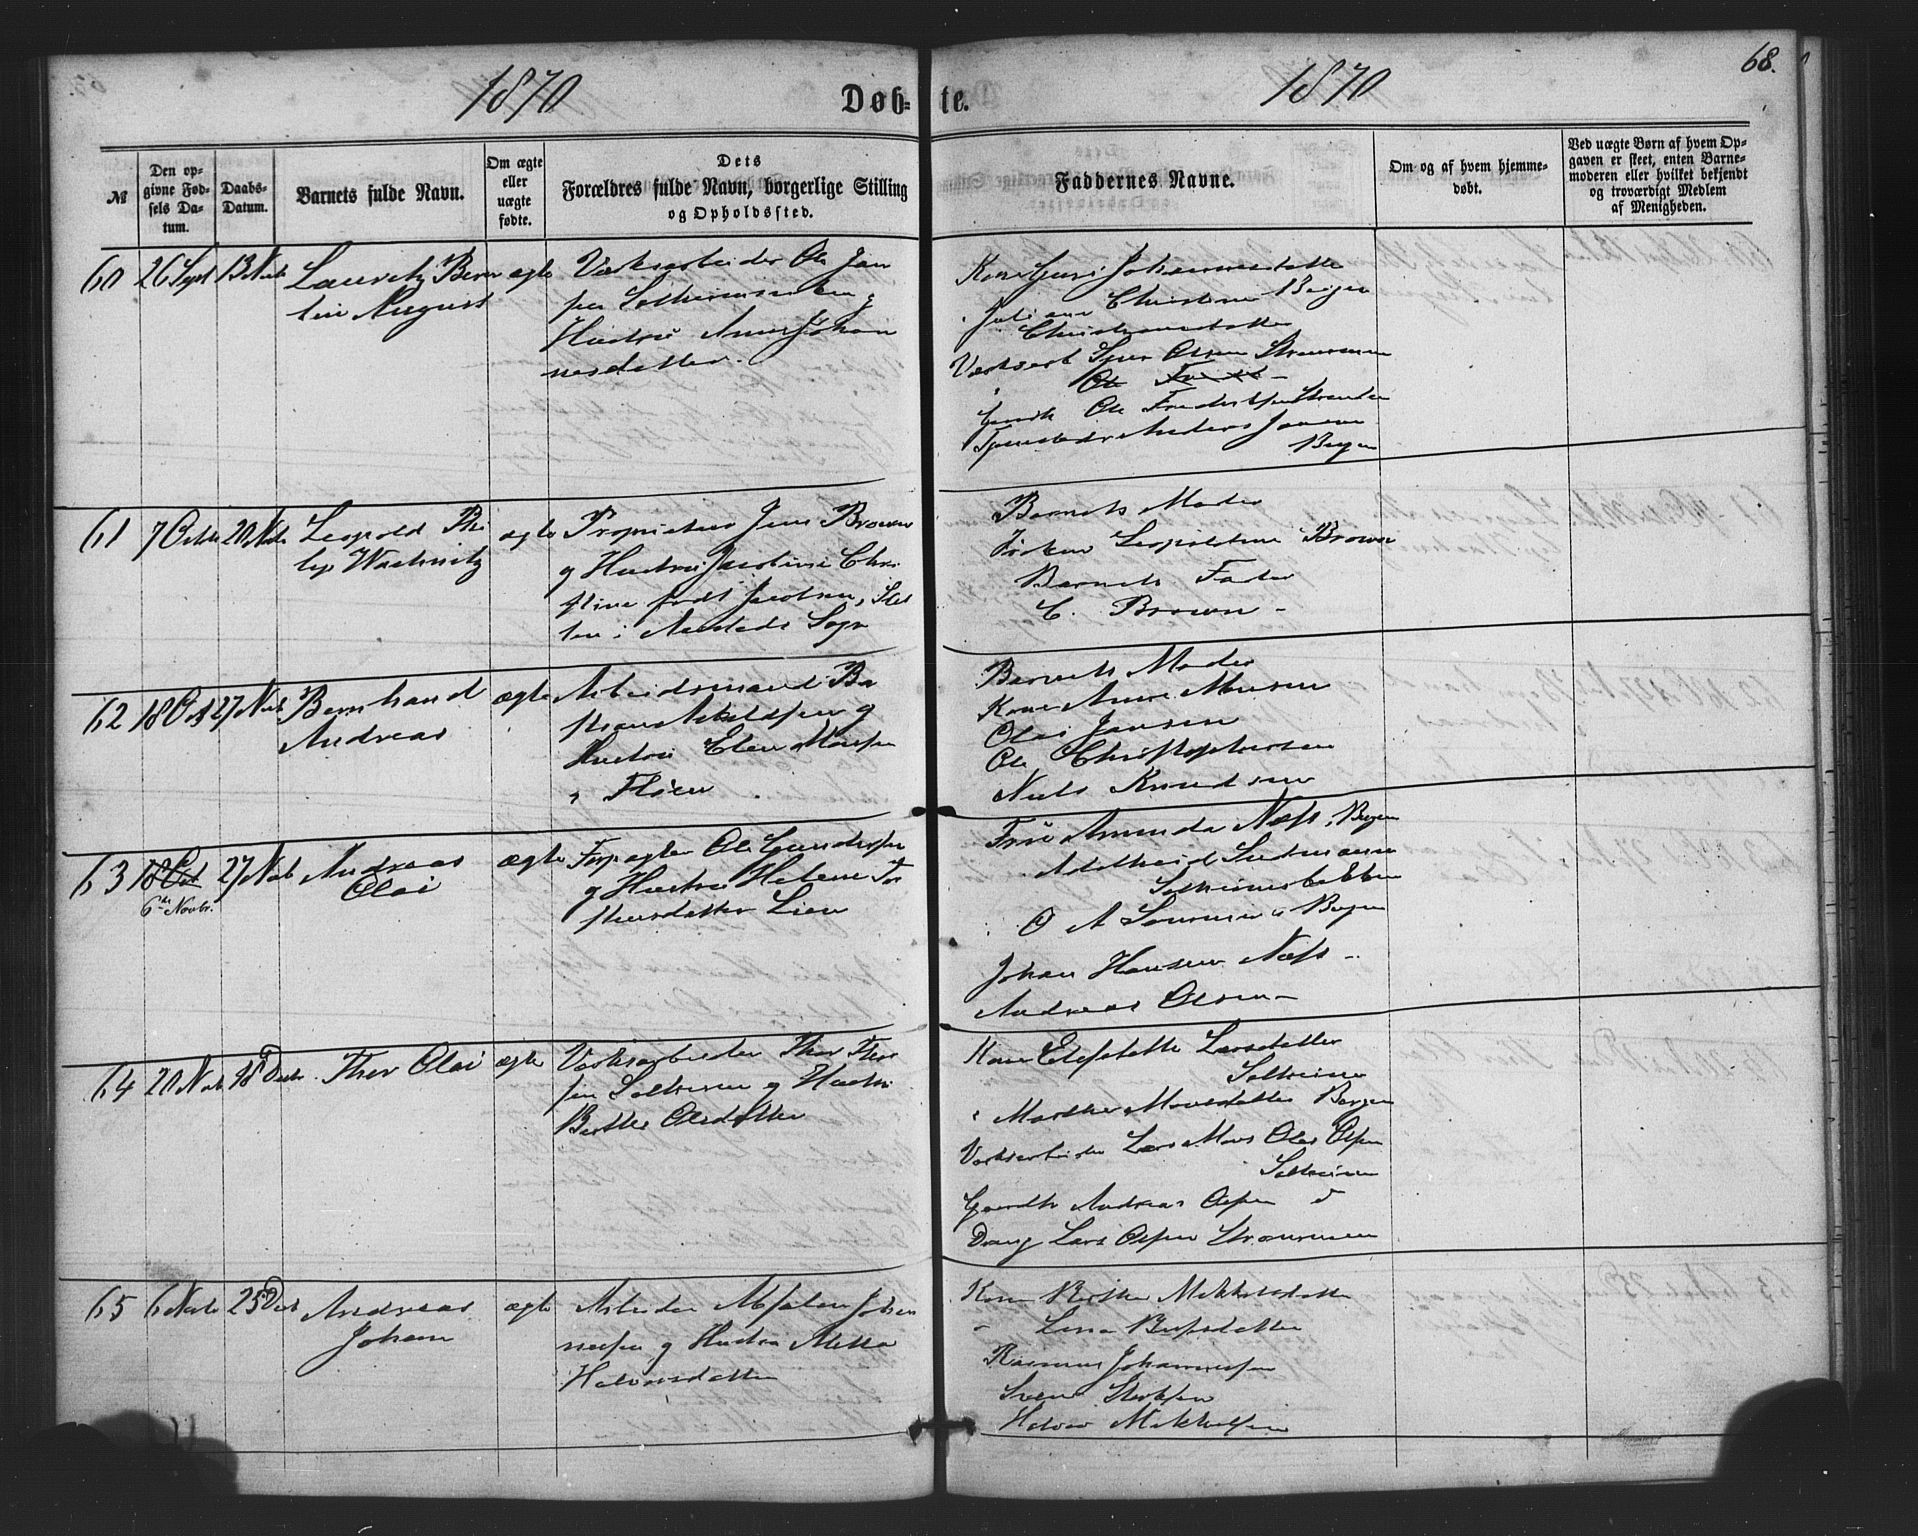 1870
Døb-
te.
1870
68.
№
Den op-
givne Fød-
sels Da-
tum.
Daabs-
Datum.
Barnets fulde Navn.
Om ægte
eller
uægte
fødte.
Dets
Forældres fulde Navn, borgerlige Stilling
og Opholdssted.
Faddernes Navne.
Om og af hvem hjemme-
døbt.
Ved uægte Børn af hvem Op-
gaven er skeet, enten Barne-
moderen eller hvilket bekjendt
og troværdigt Medlem
af Menigheden.
60 26 Sept 13 Novb
August
ægte
Værksarbeider Ole Jan
Hustru Anne Johan
nesdatter.
Kone Guri Johannesdatter
Juliane Christine Bergen
Christiansdatter
Værksarb Sjur Olsen Strømmen
Ole
Ole
Anders Jansen
Bergen
61 7 Octb 20 Novb
Leopold Phi
lip Wachnitz
ægte
Proprietær Jens Brown
og Hustru Jacobine Chri
stine født Jacobsen, Slet
ten i Aarstads Sogn
Barnets Moder
Frøken Leopoldine Brown
Barnets Fader
C. Brown -
62 18 Oct 27 Novb
Bernhard
Andreas
ægte
Arbeidsmand
og
Hustru Elen Monsen
Fløen
Barnets Moder
Kone Anne Monsen
Olai Jansen
Ole Christophersen
Niels Knudsen
63 18 Oct 27 Novb
6te Novbr.
Andreas
Olai
ægte
Forpagter Ole Gundersen
og Hustru Helene Tor
stensdatter Lien
Frue Amunda Næss, Bergen
Adelheid
Solheimsbakken
O A Sørensen Bergen
Johan Hansen Næss -
Andreas Olsen -
64 20 Novb 18 Decbr.
Thor Olai
ægte
Værksarbeider Thor Thor
sen Solheim og Hustru
Berthe Olsdatter
Kone Larsdatter
Solheim
Marthe Monsdatter Bergen
Værksarbeider Lars Mons Olai Olsen
Solheim
Andreas Olsen
Dreng Lars Olsen Strømmen
65 6 Novb 25 Decb
Andreas
Johan
ægte
Arbeider Absalon Johan
nessen og Hustru Metta
Halvorsdatter
Kone Berthe Mikkelsdatter
Rasmus Johannessen
Svend
Halvor Mikkelsen